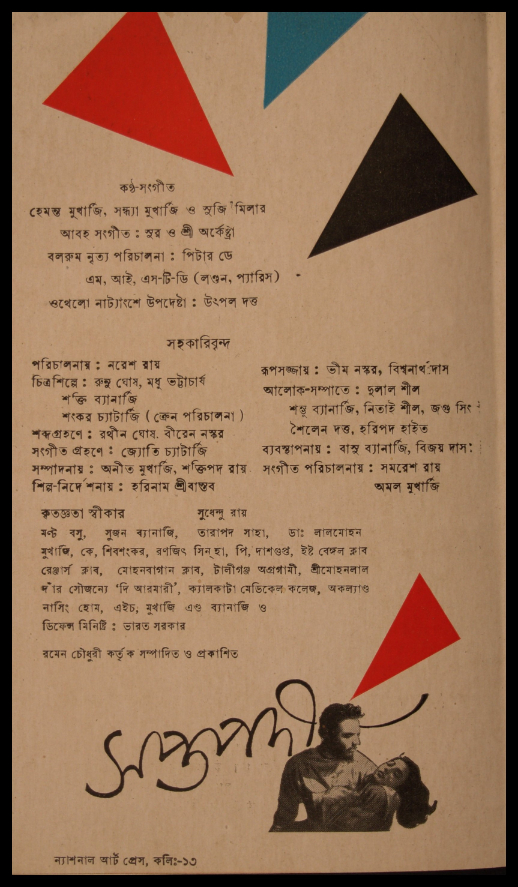 কণ্ঠ-সংগীত
হেমন্ত মুখার্জি, সন্ধ্যা মুখার্জি ও সুজি মিলার
আবহ সংগীত : সুর ও শ্রী অর্কেষ্ট্রা
বলরুম নৃত্য পরিচালনা : পিটার ডে
এম, আই, এস-টি-ডি (লণ্ডন, প্যারিস)
ওথেলো নাট্যাংশে উপদেষ্টা : উৎপল দত্ত
সহকারিবৃন্দ
পরিচালনায় : নরেশ রায়
চিত্রশিল্পে : রুনু ঘোষ, মধু ভট্টাচার্য
শক্তি ব্যানার্জি
শংকর চ্যাটার্জি (ক্রেন পরিচালনা)
শব্দগ্রহণে : রথীন ঘোষ, বীরেন নস্কর
সংগীত গ্রহণে : জ্যোতি চ্যাটার্জি
সম্পাদনায় : অনীত মুখার্জি, শক্তিপদ রায়
শিল্প-নির্দেশনায় : হরিনাম শ্রীবাস্তব
রূপসজ্জায় : ভীম নস্কর, বিশ্বনাথ দাস
আলোক-সম্পাতে : দুলাল শীল
শম্ভু ব্যানার্জি, নিতাই শীল, জগু সিং
শৈলেন দত্ত, হরিপদ হাইত
ব্যবস্থাপনায় : বাসু ব্যানার্জি, বিজয় দাস
সংগীত পরিচালনায় : সমরেশ রায়
অমল মুখার্জি
কৃতজ্ঞতা স্বীকার সুধেন্দু রায়
মন্টু বসু, সুজন ব্যানার্জি, তারাপদ সাহা, ডাঃ লালমোহন
মুখার্জি, কে, শিবশংকর, রণজিৎ সিন্‌হা, পি, দাশগুপ্ত, ইষ্ট বেঙ্গল ক্লাব
রেঞ্জার্স ক্লাব, মোহনবাগান ক্লাব, টালীগঞ্জ অগ্রগামী, শ্রীমোহনলাল
দাঁর সৌজন্যে 'দি আরমারী', ক্যালকাটা মেডিকেল কলেজ, অকল্যাণ্ড
নার্সিং হোম, এইচ, মুখার্জি এণ্ড ব্যানার্জি ও
ডিফেন্স মিনিষ্ট্রি : ভারত সরকার
রমেন চৌধুরী কর্তৃক সম্পাদিত ও প্রকাশিত
সপ্তপদী
ন্যাশনাল আর্ট প্রেস, কলিঃ-১৩